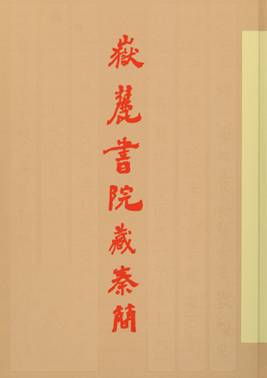 嶽麓書院藏秦簡